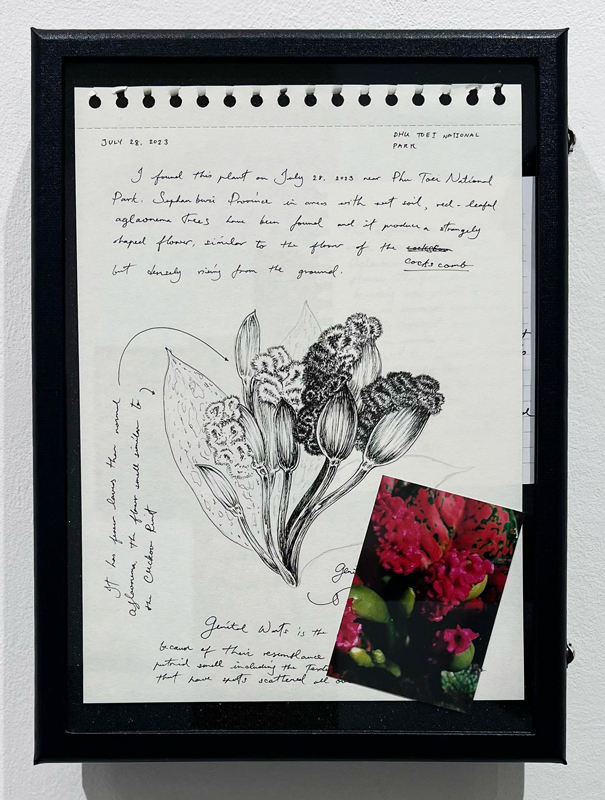 JULY 28, 2023
PHU TOEI NATIONAL
PARK
I found this plant on July 28, 2023 near Phu Toei National
Park. Suphan buri Province in areas with wet soil, red-leafed
aglaonema trees have been found and it produce a strangely
shaped flower, similar to the flower of the
cockscomb
but densely rising from the ground.
It has fewer leaves than normal
aglaonema, the flower smell similar to
the Cuckoo Pint
Genit
Genital Warts is the
because of their resemblance
putrid smell including the
that have spots scattered all